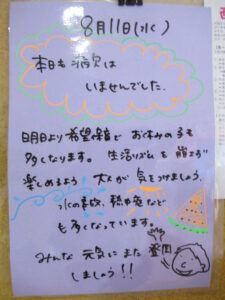 8月11日(水)
本日も病欠は
いませんでした。
明日より希望保育と お休みの子も
多くなります。生活リズムを崩さず
楽しめるよう 大人が気をつけましょう。
水の事故、熱中症など
も多くなっています。
みんな 元気にまた 登園
しましょう!!